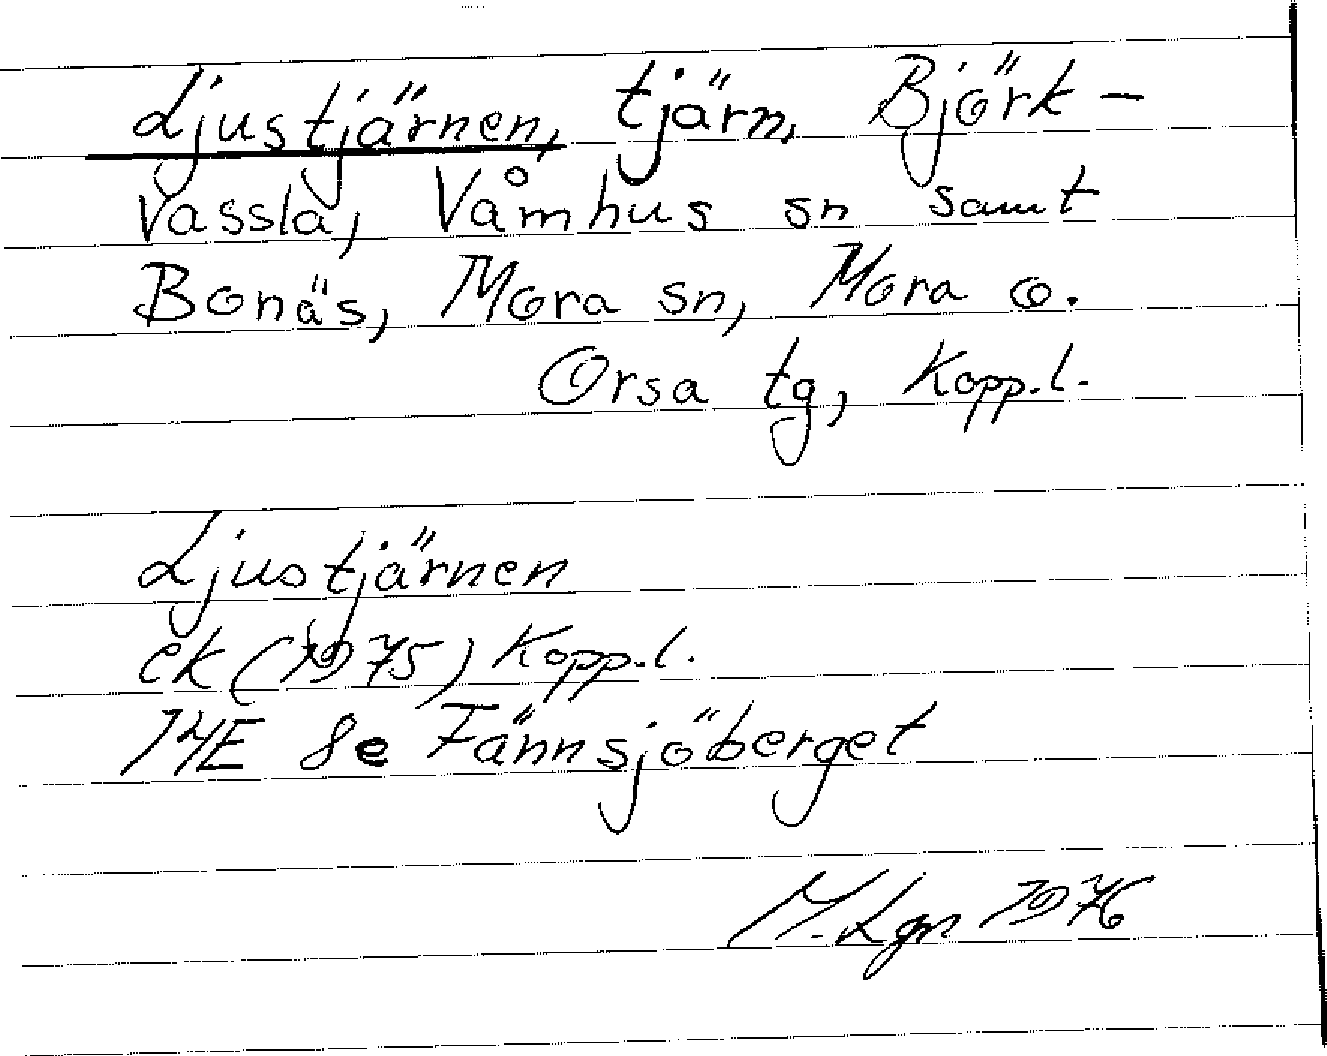 Ljustjärnen, tjärn, Björk-
vassla, Våmhus sn samt
Bonäs, Mora sn, Mora o.
Orsa tg, Kopp.l.
Ljustjärnen
ek (1975) Kopp.l.
14E 8e Fännsjöberget
M.Lgn 1976